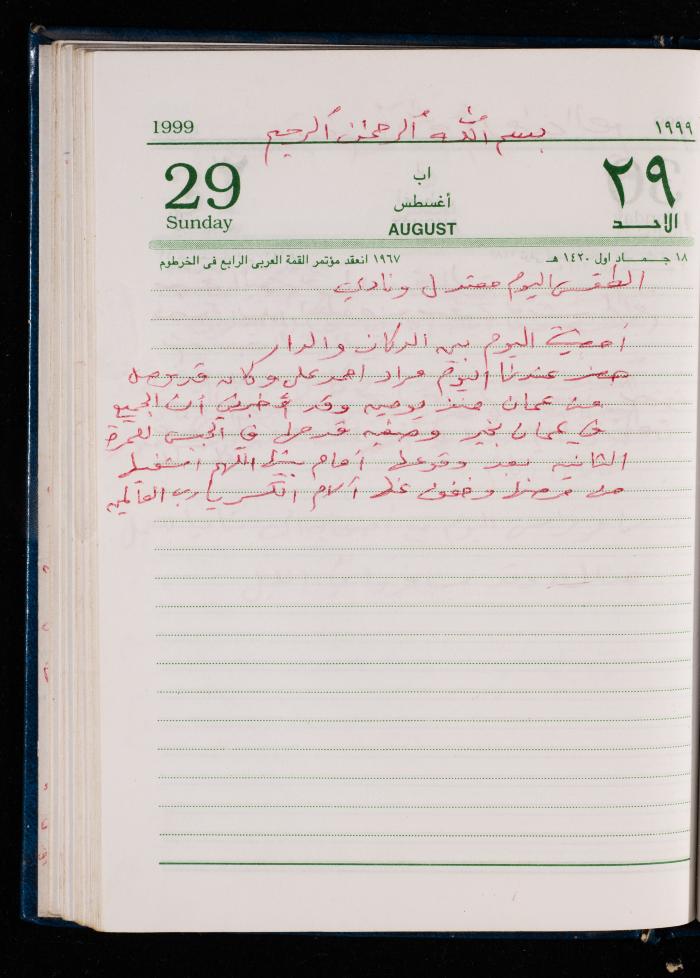 1999 بسم الله الرحمن الرحيم ١٩٩٩
29 اب ٢٩
Sunday أغسطس الاحد
AUGUST
١٨ جمــاد اول ١٤٢٠ هـ ١٩٦٧ انعقد مؤتمر القمة العربى الرابع فى الخرطوم
الطقس اليوم معتدل ونادي
أمضيت اليوم بين الدكان والدار
حضر عندنا اليوم مراد احمد علي وكان قد وصل
من عمان منذ يومين وقد أخبرني أن الجميع
في عمان بخير وصفيه قد في الجبس للمرة
الثانيه بعد وقوعها أمام اللهم
من مرضها وخفف عنها آلام الكسر يا رب العالمين